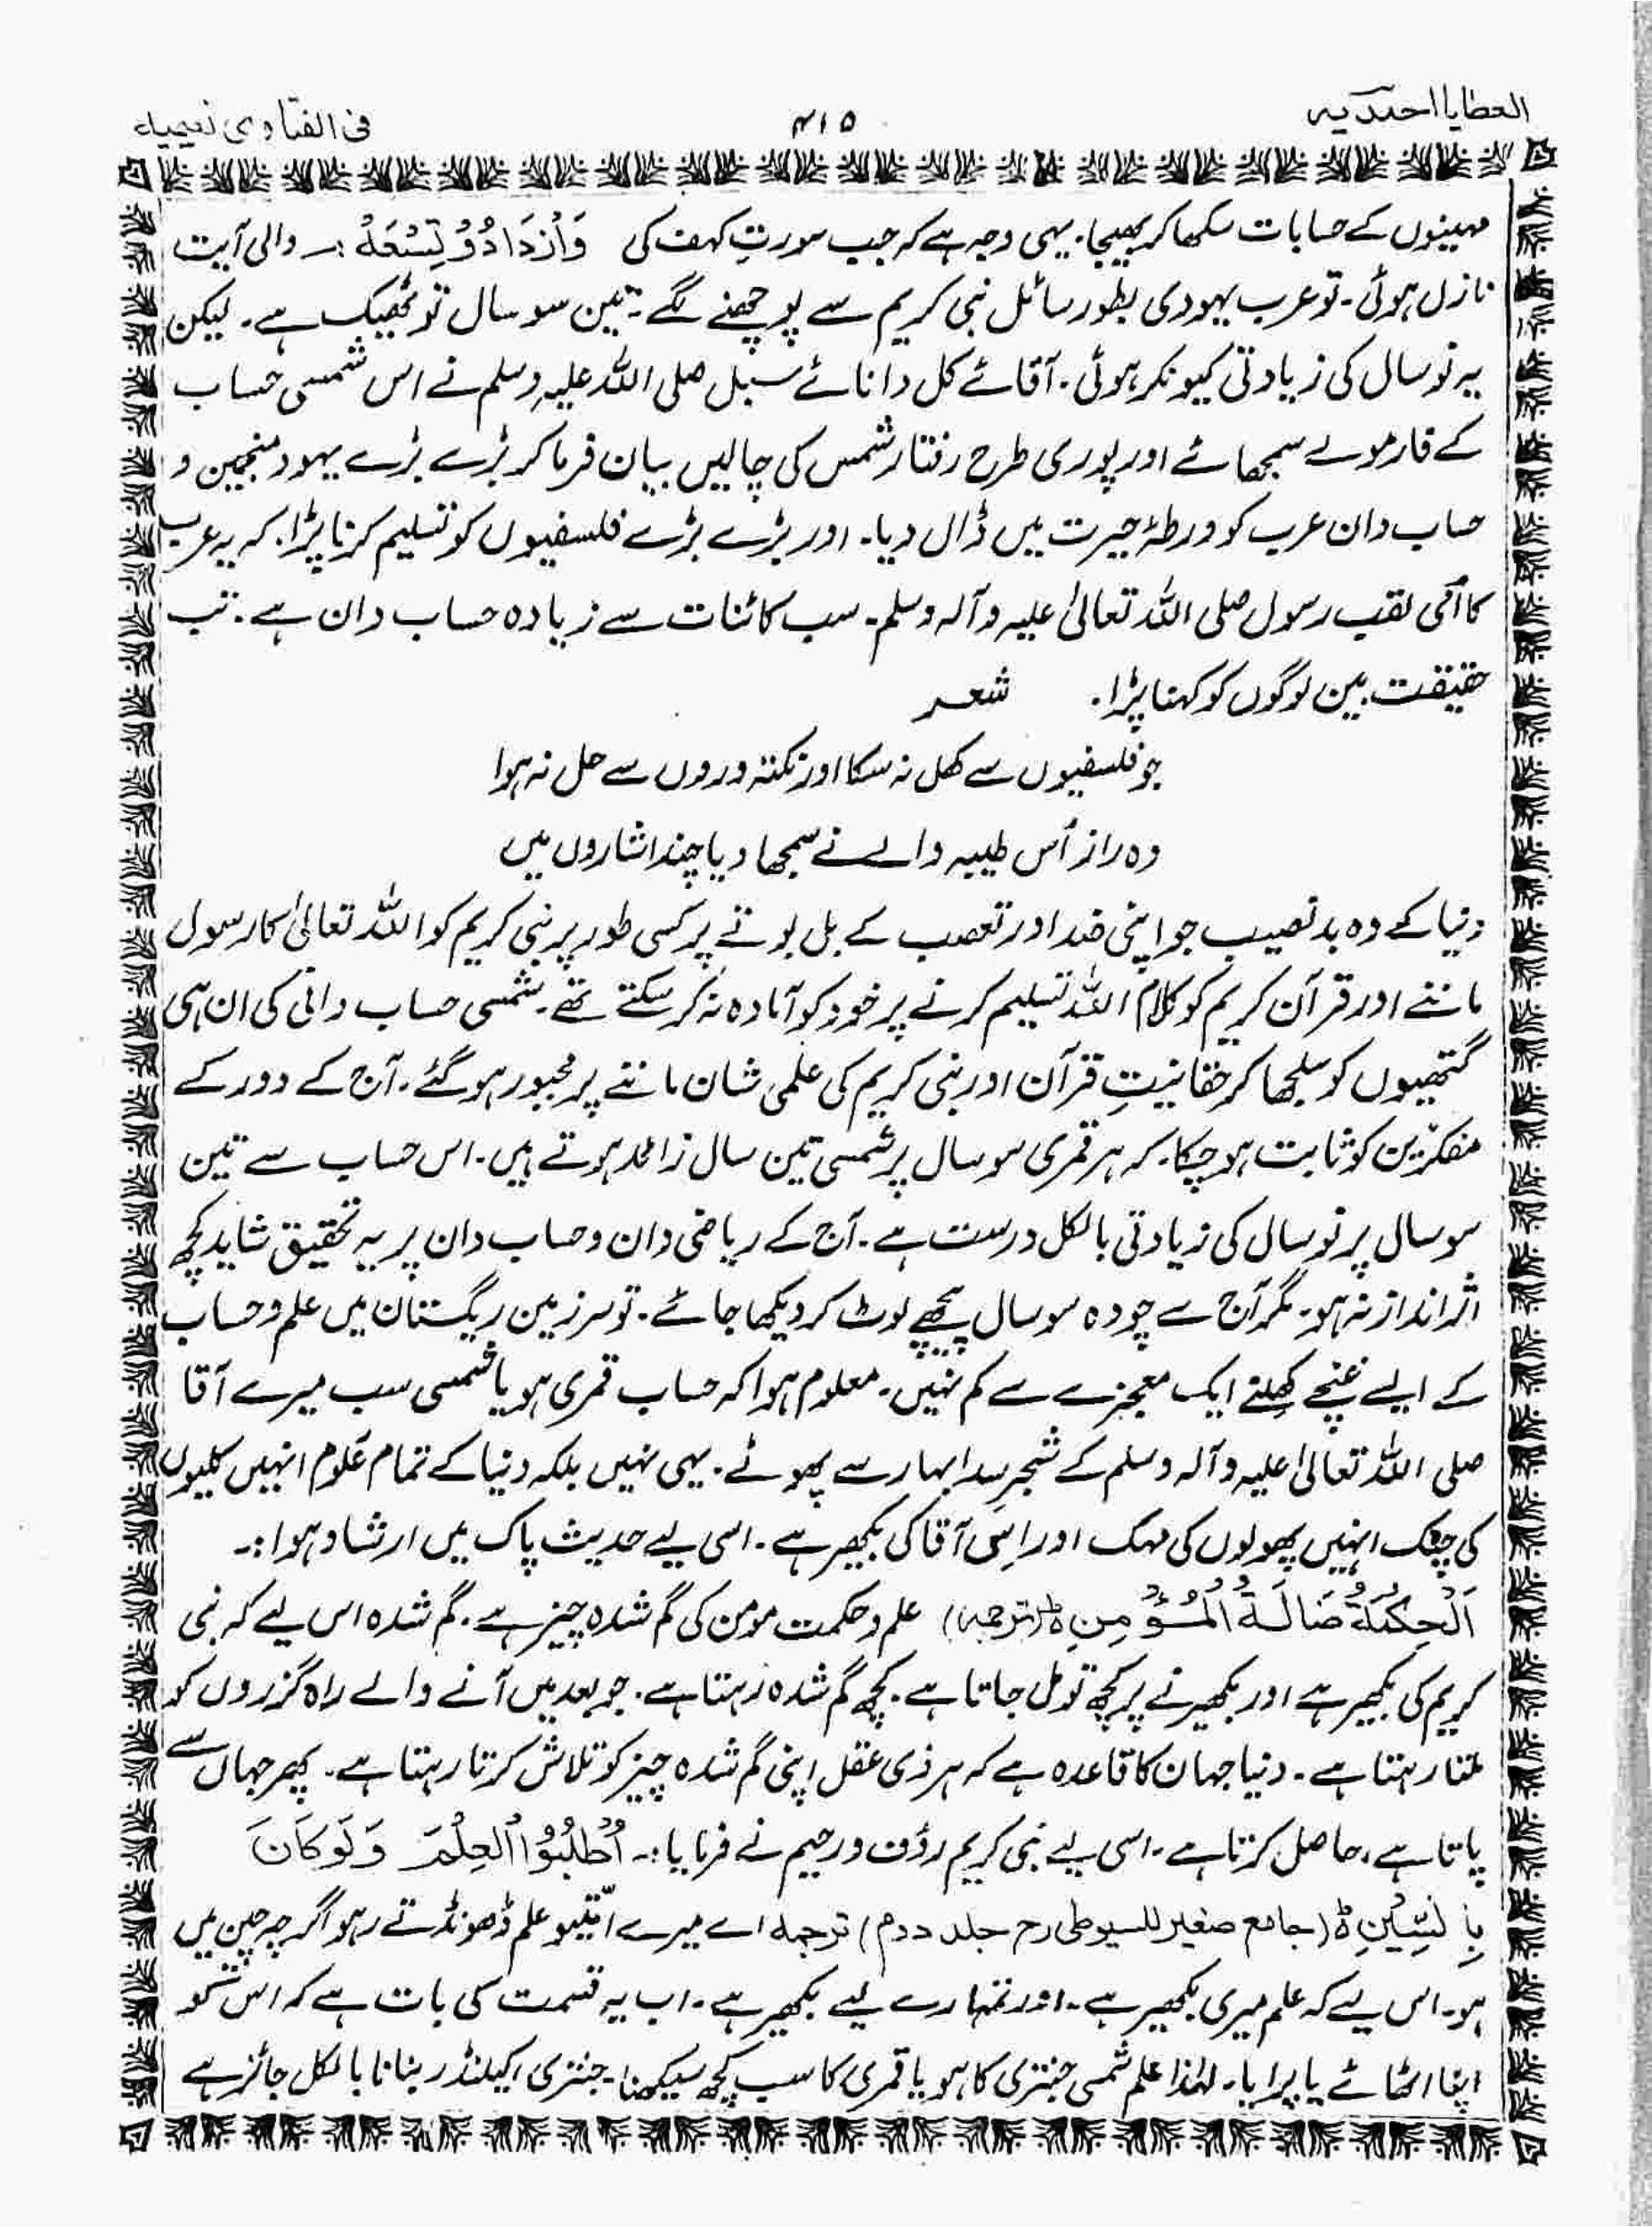 العطایا احمدیہ
۴۱۵
فی الفتاوی نعیمیہ
مہینوں کے حسابات سکھا کر بھیجا۔ یہی وجہ ہے کہ جب سورتِ کہف کی وَازْدَادُوْ تِسْعَہْ :۔ والی آیت
نازل ہوئی۔ تو عرب یہودی بطور سائل نبی کریم سے پوچھنے لگے۔ تین سو سال تو ٹھیک ہے۔ لیکن
یہ نو سال کی زیادتی کیونکر ہوئی۔ آقائے کل دانائے سبل صلی اللہ علیہ وسلم نے اس شمسی حساب
کے فارمولے سمجھائے اور پوری طرح رفتار شمس کی چالیں بیان فرما کر بڑے بڑے یہود منجمین و
حساب دان عرب کو ورطۂ حیرت میں ڈال دیا۔ اور بڑے بڑے فلسفیوں کو تسلیم کرنا پڑا۔ کہ یہ عرب
کا اُمی لقب رسول صلی اللہ تعالیٰ علیہ وآلہ وسلم۔ سب کائنات سے زیادہ حساب دان ہے۔ تب
حقیقت بین لوگوں کو کہنا پڑا۔ شعر
جو فلسفیوں سے کھل نہ سکا اور نکتہ وروں سے حل نہ ہوا
وہ راز اُس طیبہ والے نے سمجھا دیا چند اشاروں میں
دنیا کے وہ بدنصیب جو اپنی ضد اور تعصب کے بل بوتے پر کسی طور پر نبی کریم کو اللہ تعالیٰ کا رسول
ماننے اور قرآن کریم کو کلام اللہ تسلیم کرنے پر خود کو آمادہ نہ کر سکتے تھے۔ شمسی حساب دانی کی ان ہی
گتھیوں کو سلجھا کر حقانیتِ قرآن اور نبی کریم کی علمی شان ماننے پر مجبور ہو گئے۔ آج کے دور کے
مفکرین کو ثابت ہو چکا۔ کہ ہر قمری سو سال پر شمسی تین سال زائد ہوتے ہیں۔ اس حساب سے تین
سو سال پر نو سال کی زیادتی بالکل درست ہے۔ آج کے ریاضی دان و حساب دان پر یہ تحقیق شاید کچھ
اثر انداز نہ ہو۔ مگر آج سے چودہ سو سال پیچھے لوٹ کر دیکھا جائے۔ تو سر زمین ریگستان میں علم و حساب
کے ایسے غنچے کھلنے ایک معجزے سے کم نہیں۔ معلوم ہوا کہ حساب قمری ہو یا شمسی سب میرے آقا
صلی اللہ تعالیٰ علیہ وآلہ وسلم کے شجرِ سدا بہار سے پھوٹے۔ یہی نہیں بلکہ دنیا کے تمام علوم انہیں کلیوں
کی چٹک انہیں پھولوں کی مہک اور اسی آقا کی بکھیر ہے۔ اسی لیے حدیث پاک میں ارشاد ہوا :۔
اَلْحِکْمَۃُ ضَالَۃُ الْمُؤْمِنِ ہ (ترجمہ) علم و حکمت مومن کی گم شدہ چیز ہے۔ گم شدہ اس لیے کہ نبی
کریم کی بکھیر ہے اور بکھیرنے پر کچھ تو مل جاتا ہے۔ کچھ گم شدہ رہتا ہے۔ جو بعد میں آنے والے راہ گزروں کو
ملتا رہتا ہے۔ دنیا جہان کا قاعدہ ہے کہ ہر ذی عقل اپنی گم شدہ چیز کو تلاش کرتا رہتا ہے۔ پھر جہاں سے
پاتا ہے، حاصل کرتا ہے۔ اسی لیے نبی کریم رؤف و رحیم نے فرمایا :۔ اُطْلُبُوْا الْعِلْمَ وَلَوْ کَانَ
بِالسِّیْنِ ہ (جامع صغیر للسیوطی رح جلد دوم) ترجمہ اے میرے امّتیو علم ڈھونڈتے رہو اگرچہ چین میں
ہو۔ اس لیے کہ علم میری بکھیر ہے۔ اور تمہارے لیے بکھیر ہے۔ اب یہ قسمت کی بات ہے کہ اس کو
اپنا اٹھائے یا پرایا۔ لہٰذا علم شمسی جنتری کا ہو یا قمری کا سب کچھ سیکھنا۔ جنتری، کیلنڈر بنانا بالکل جائز ہے